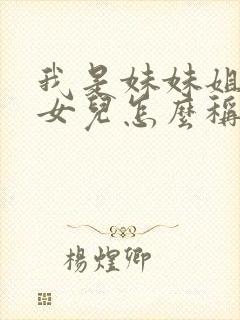 我是妹妹姐
女兒怎麼稱
楊煌卿